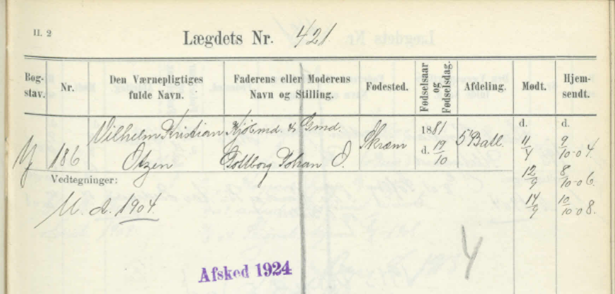 II. 2
Lægdets Nr. 421
Bogstav. Nr. Den Værnepligtiges fulde Navn. Faderens eller Moderens Navn og Stilling. Fødested. Fødselsaar og Fødselsdag. Afdeling. Mødt. Hjemsendt.
Vilhelm Kristian Kjøbmd. & Gmd. Skræm 1881 5' Batl. d. d.
186 Otzen Gotborg Johan O. d. 19/10 11/9 9/10 04.
Vedtegninger: 12/9 8/10 06.
U. d. 1904 14/9 10/10 08.
4
Afsked 1924